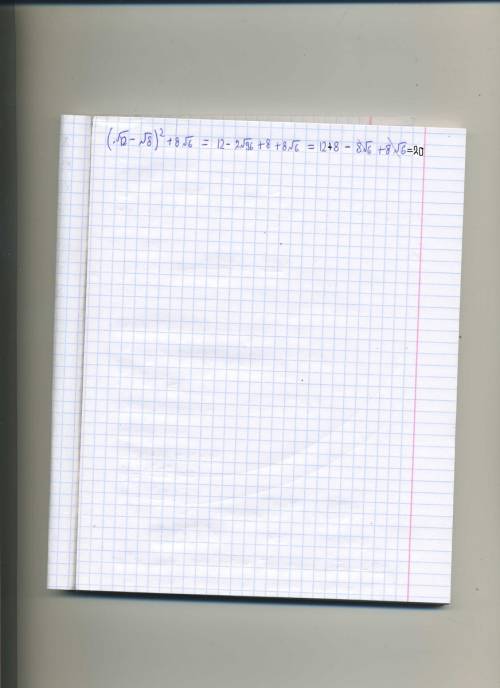 (√12 - √8)² + 8√6 = 12 - 2√96 + 8 + 8√6 = 12+8 - 8√6 + 8√6 = 20